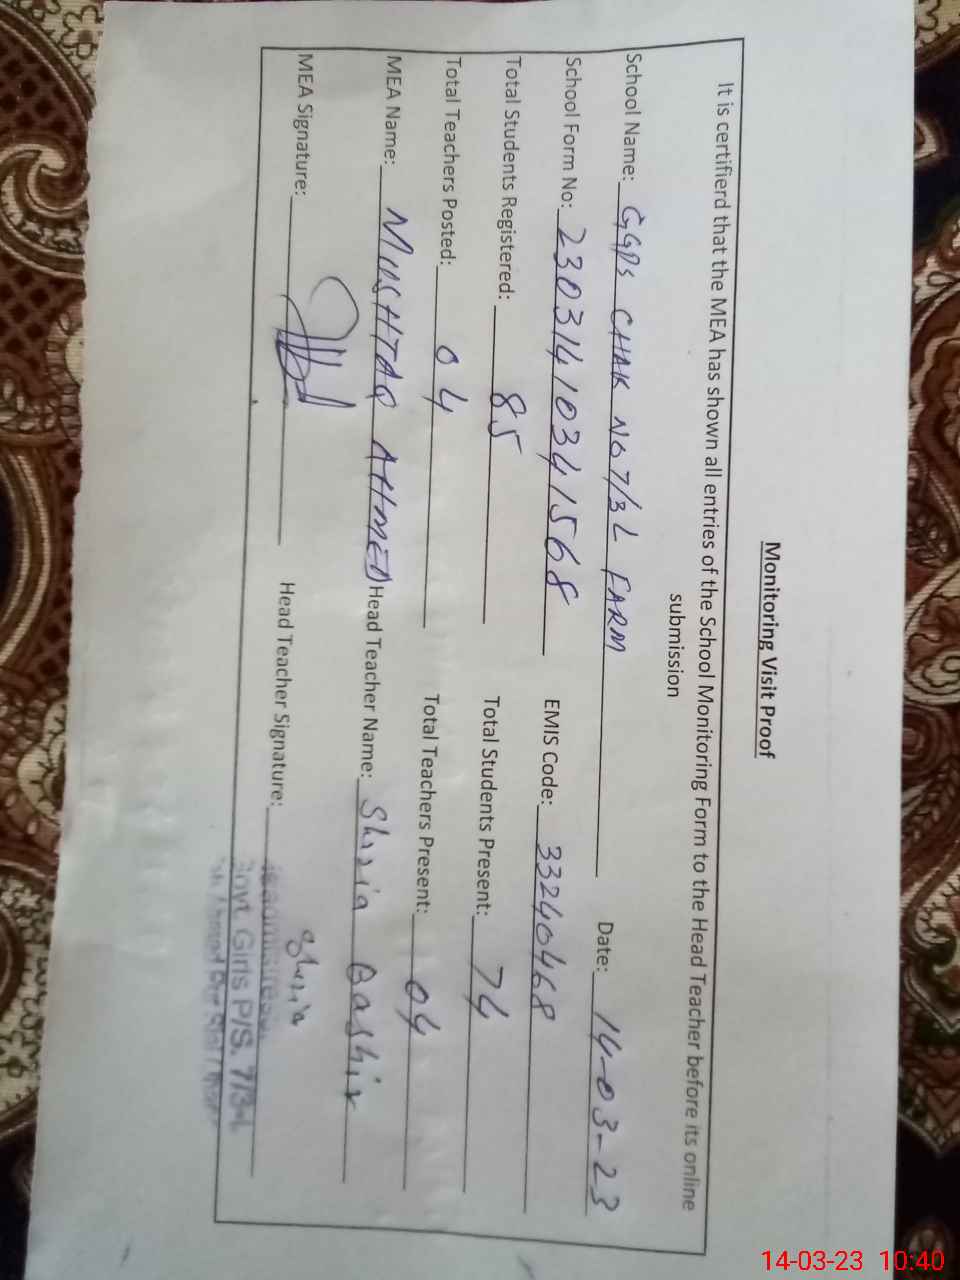 Monitoring Visit Proof
It is certifierd that the MEA has shown all entries of the School Monitoring Form to the Head Teacher before its online
submission
School Name: GGPS CHAK NO 7/3 L FARM Date: 14-03-23
School Form No: 23031410341568 EMIS Code: 33240468
Total Students Registered: 85 Total Students Present: 74
Total Teachers Posted: 04 Total Teachers Present: 04
MEA Name: MUSHTAQ AHMED Head Teacher Name: Bashir
MEA Signature: Head Teacher Signature:
Headmistress
Govt. Girls P/S. 7/3-L
14-03-23 10:40